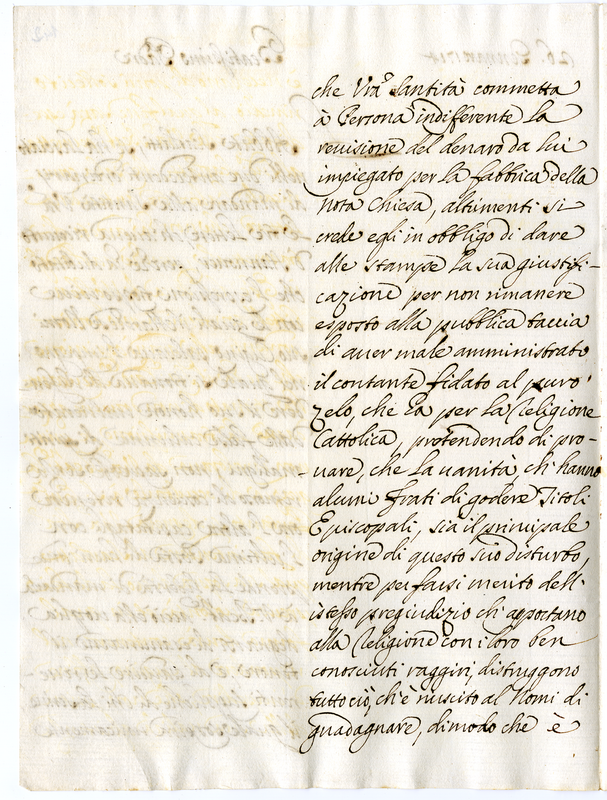 che Vrã Santità commetta
à Persona indifferente la
revisione del denaro da lui
impiegato per la fabbrica della
nota Chiesa, altrimenti si
crede egli in obbligo di dare
alle stampe la sua giustifi-
cazione per non rimanere
esposto alla pubblica taccia
di aver male amministrato
il contante fidato al puro
zelo, che hà per la Religione
Cattolica, pretendendo di pro-
vare, che la vanità ch'hanno
alcuni frati di godere Titoli
Episcopali, sia il principale
origine di questo suo disturbo,
mentre per farsi merito dell'
istesso pregiudizio ch'apportano
alla Religione con i loro ben
conosciuti raggiri, distruggono
tutto ciò, ch'è riuscito al Nomi di
guadagnare, dimodo che è